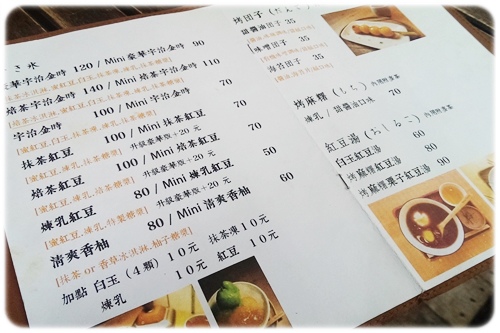 き氷
豪華宇治金時 120 / Mini 豪華宇治金時 90
焙茶宇治金時 140 / Mini 焙茶宇治金時 110
宇治金時 100 / Mini 宇治金時 70
[蜜紅豆, 白玉, 抹茶凍, 煉乳, 抹茶糖漿]
抹茶紅豆 100 / Mini 抹茶紅豆 70
[蜜紅豆, 煉乳, 抹茶糖漿] 升級豪華版+20元
焙茶紅豆 100 / Mini 焙茶紅豆 70
[蜜紅豆, 煉乳, 焙茶糖漿] 升級豪華版+20元
煉乳紅豆 80 / Mini 煉乳紅豆 50
[蜜紅豆, 煉乳, 特製糖漿] 升級豪華版+20元
清爽香柚 80 / Mini 清爽香柚 60
[抹茶 or 香草冰淇淋, 柚子糖漿]
加點 白玉(4顆)10元 抹茶凍10元
煉乳 10元 紅豆 10元
烤団子(だんご)
甜醬油団子 35
味噌団子 35
海苔団子 35
烤麻糬(もち) 內閣限喜
煉乳 / 甜醬油口味 70
紅豆湯(おしるこ)
白玉紅豆湯 60
烤麻糬紅豆湯 80
烤麻糬栗子紅豆湯 90